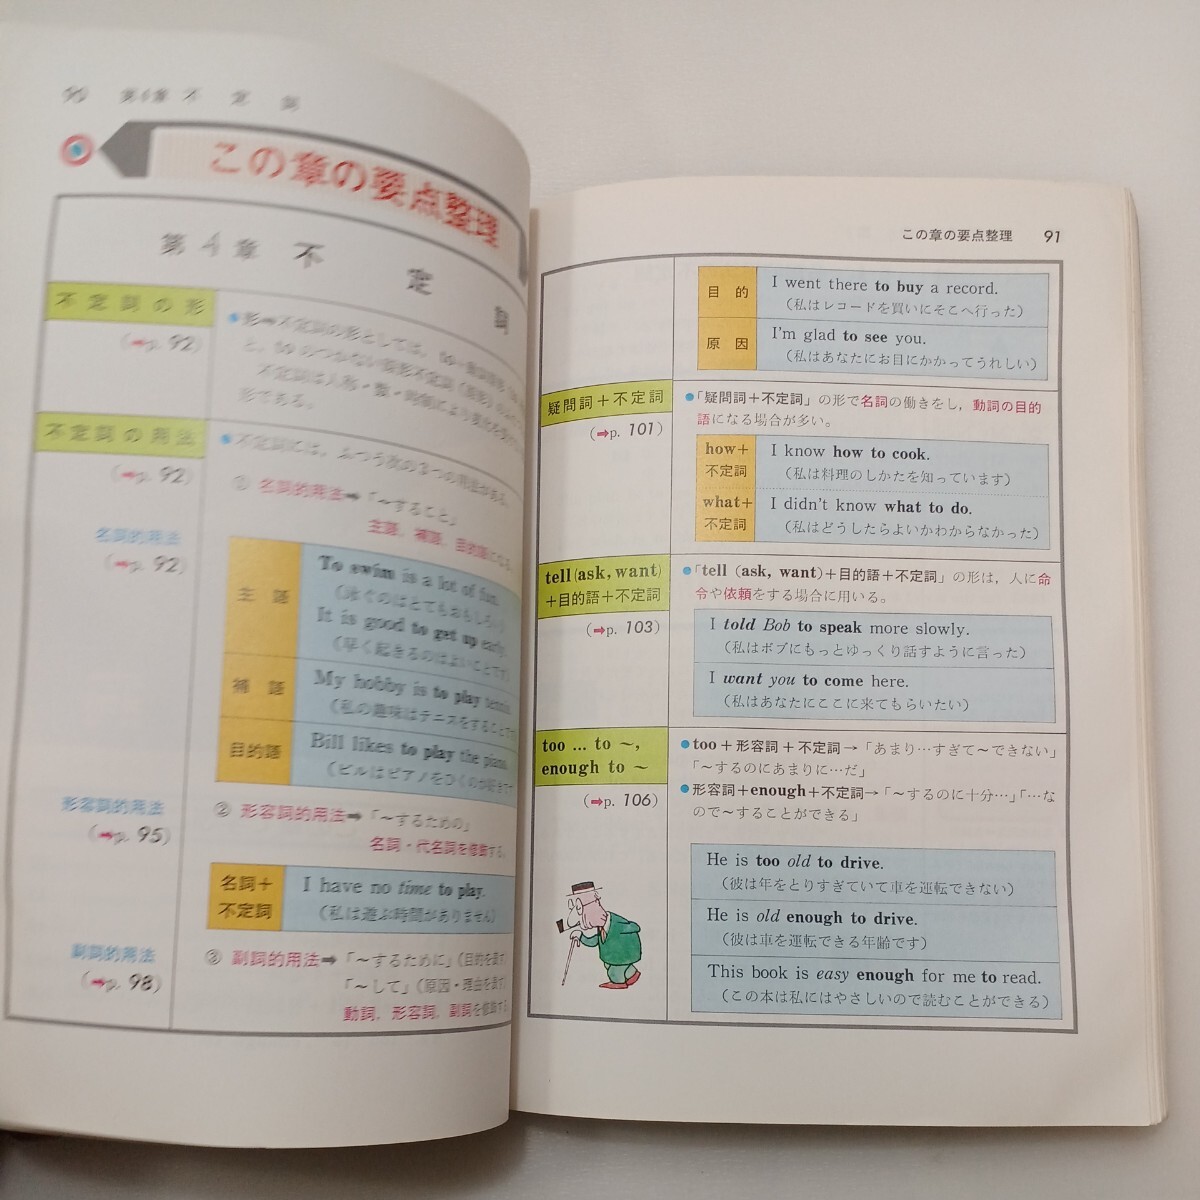 90 第4章 不 定 詞
この章の要点整理
第 4 章 不 定 詞
不定詞の形
(➡p. 92)
●形➡不定詞の形としては,
形である。
不定詞の用法
(➡p. 92)
●不定詞には, ふつう次の3つの用法がある。
① 名詞的用法➡「～すること」
主語, 補語, 目的語になる。
名詞的用法
(➡p. 92)
主 語
To swim is a lot of fun.
(泳ぐのはとてもおもしろい)
It is good to get up early.
(早く起きるのはよいことです)
補 語
My hobby is to play tennis.
(私の趣味はテニスをすることです)
目的語
Bill likes to play the piano.
形容詞的用法
(➡p. 95)
② 形容詞的用法➡「～するための」
名詞・代名詞を修飾する。
名詞＋
不定詞
I have no time to play.
(私は遊ぶ時間がありません)
副詞的用法
(➡p. 98)
③ 副詞的用法➡「～するために」(目的を表す
「～して」(原因・理由を表す
動詞, 形容詞, 副詞を修飾する
この章の要点整理 91
目 的
I went there to buy a record.
(私はレコードを買いにそこへ行った)
原 因
I'm glad to see you.
(私はあなたにお目にかかってうれしい)
疑問詞＋不定詞
(➡p. 101)
●「疑問詞＋不定詞」の形で名詞の働きをし, 動詞の目的
語になる場合が多い。
how＋
不定詞
I know how to cook.
(私は料理のしかたを知っています)
what＋
不定詞
I didn't know what to do.
(私はどうしたらよいかわからなかった)
tell (ask, want)
＋目的語＋不定詞
(➡p. 103)
●「tell (ask, want)＋目的語＋不定詞」の形は, 人に命
令や依頼をする場合に用いる。
I told Bob to speak more slowly.
(私はボブにもっとゆっくり話すように言った)
I want you to come here.
(私はあなたにここに来てもらいたい)
too … to ～,
enough to ～
(➡p. 106)
●too＋形容詞＋不定詞→「あまり…すぎて～できない」
「～するのにあまりに…だ」
●形容詞＋enough＋不定詞→「～するのに十分…」「…な
ので～することができる」
He is too old to drive.
(彼は年をとりすぎていて車を運転できない)
He is old enough to drive.
(彼は車を運転できる年齢です)
This book is easy enough for me to read.
(この本は私にはやさしいので読むことができる)